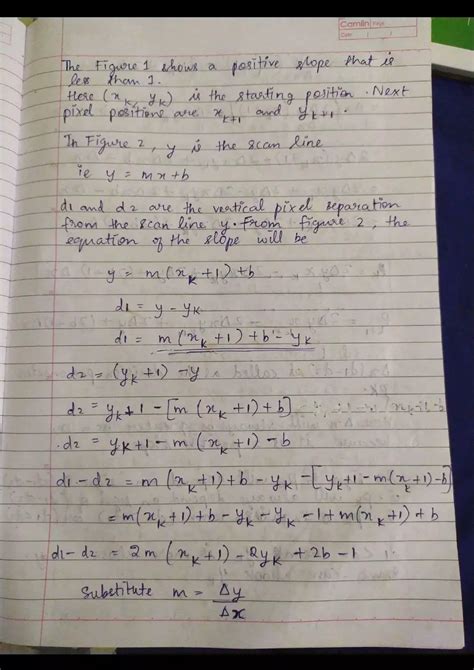 Camlin Page
Date / /
The Figure 1 shows a positive slope that is
less than 1.
Here (x_k, y_k) is the starting position. Next
pixel positions are x_{k+1} and y_{k+1}.
In Figure 2, y is the scan line
ie y = mx+b
d1 and d2 are the vertical pixel separation
from the scan line y. From figure 2, the
equation of the slope will be
y = m(x_k+1)+b
d1 = y - y_k
d1 = m(x_k+1)+b-y_k
d2 = (y_k+1) - y
d2 = y_k+1 - [m(x_k+1)+b]
d2 = y_k+1 - m(x_k+1) - b
d1 - d2 = m(x_k+1)+b - y_k - [y_k+1 - m(x_k+1)-b]
= m(x_k+1)+b-y_k-y_k-1+m(x_k+1)+b
d1-d2 = 2m(x_k+1) - 2y_k + 2b - 1
Substitute m = Δy
Δx